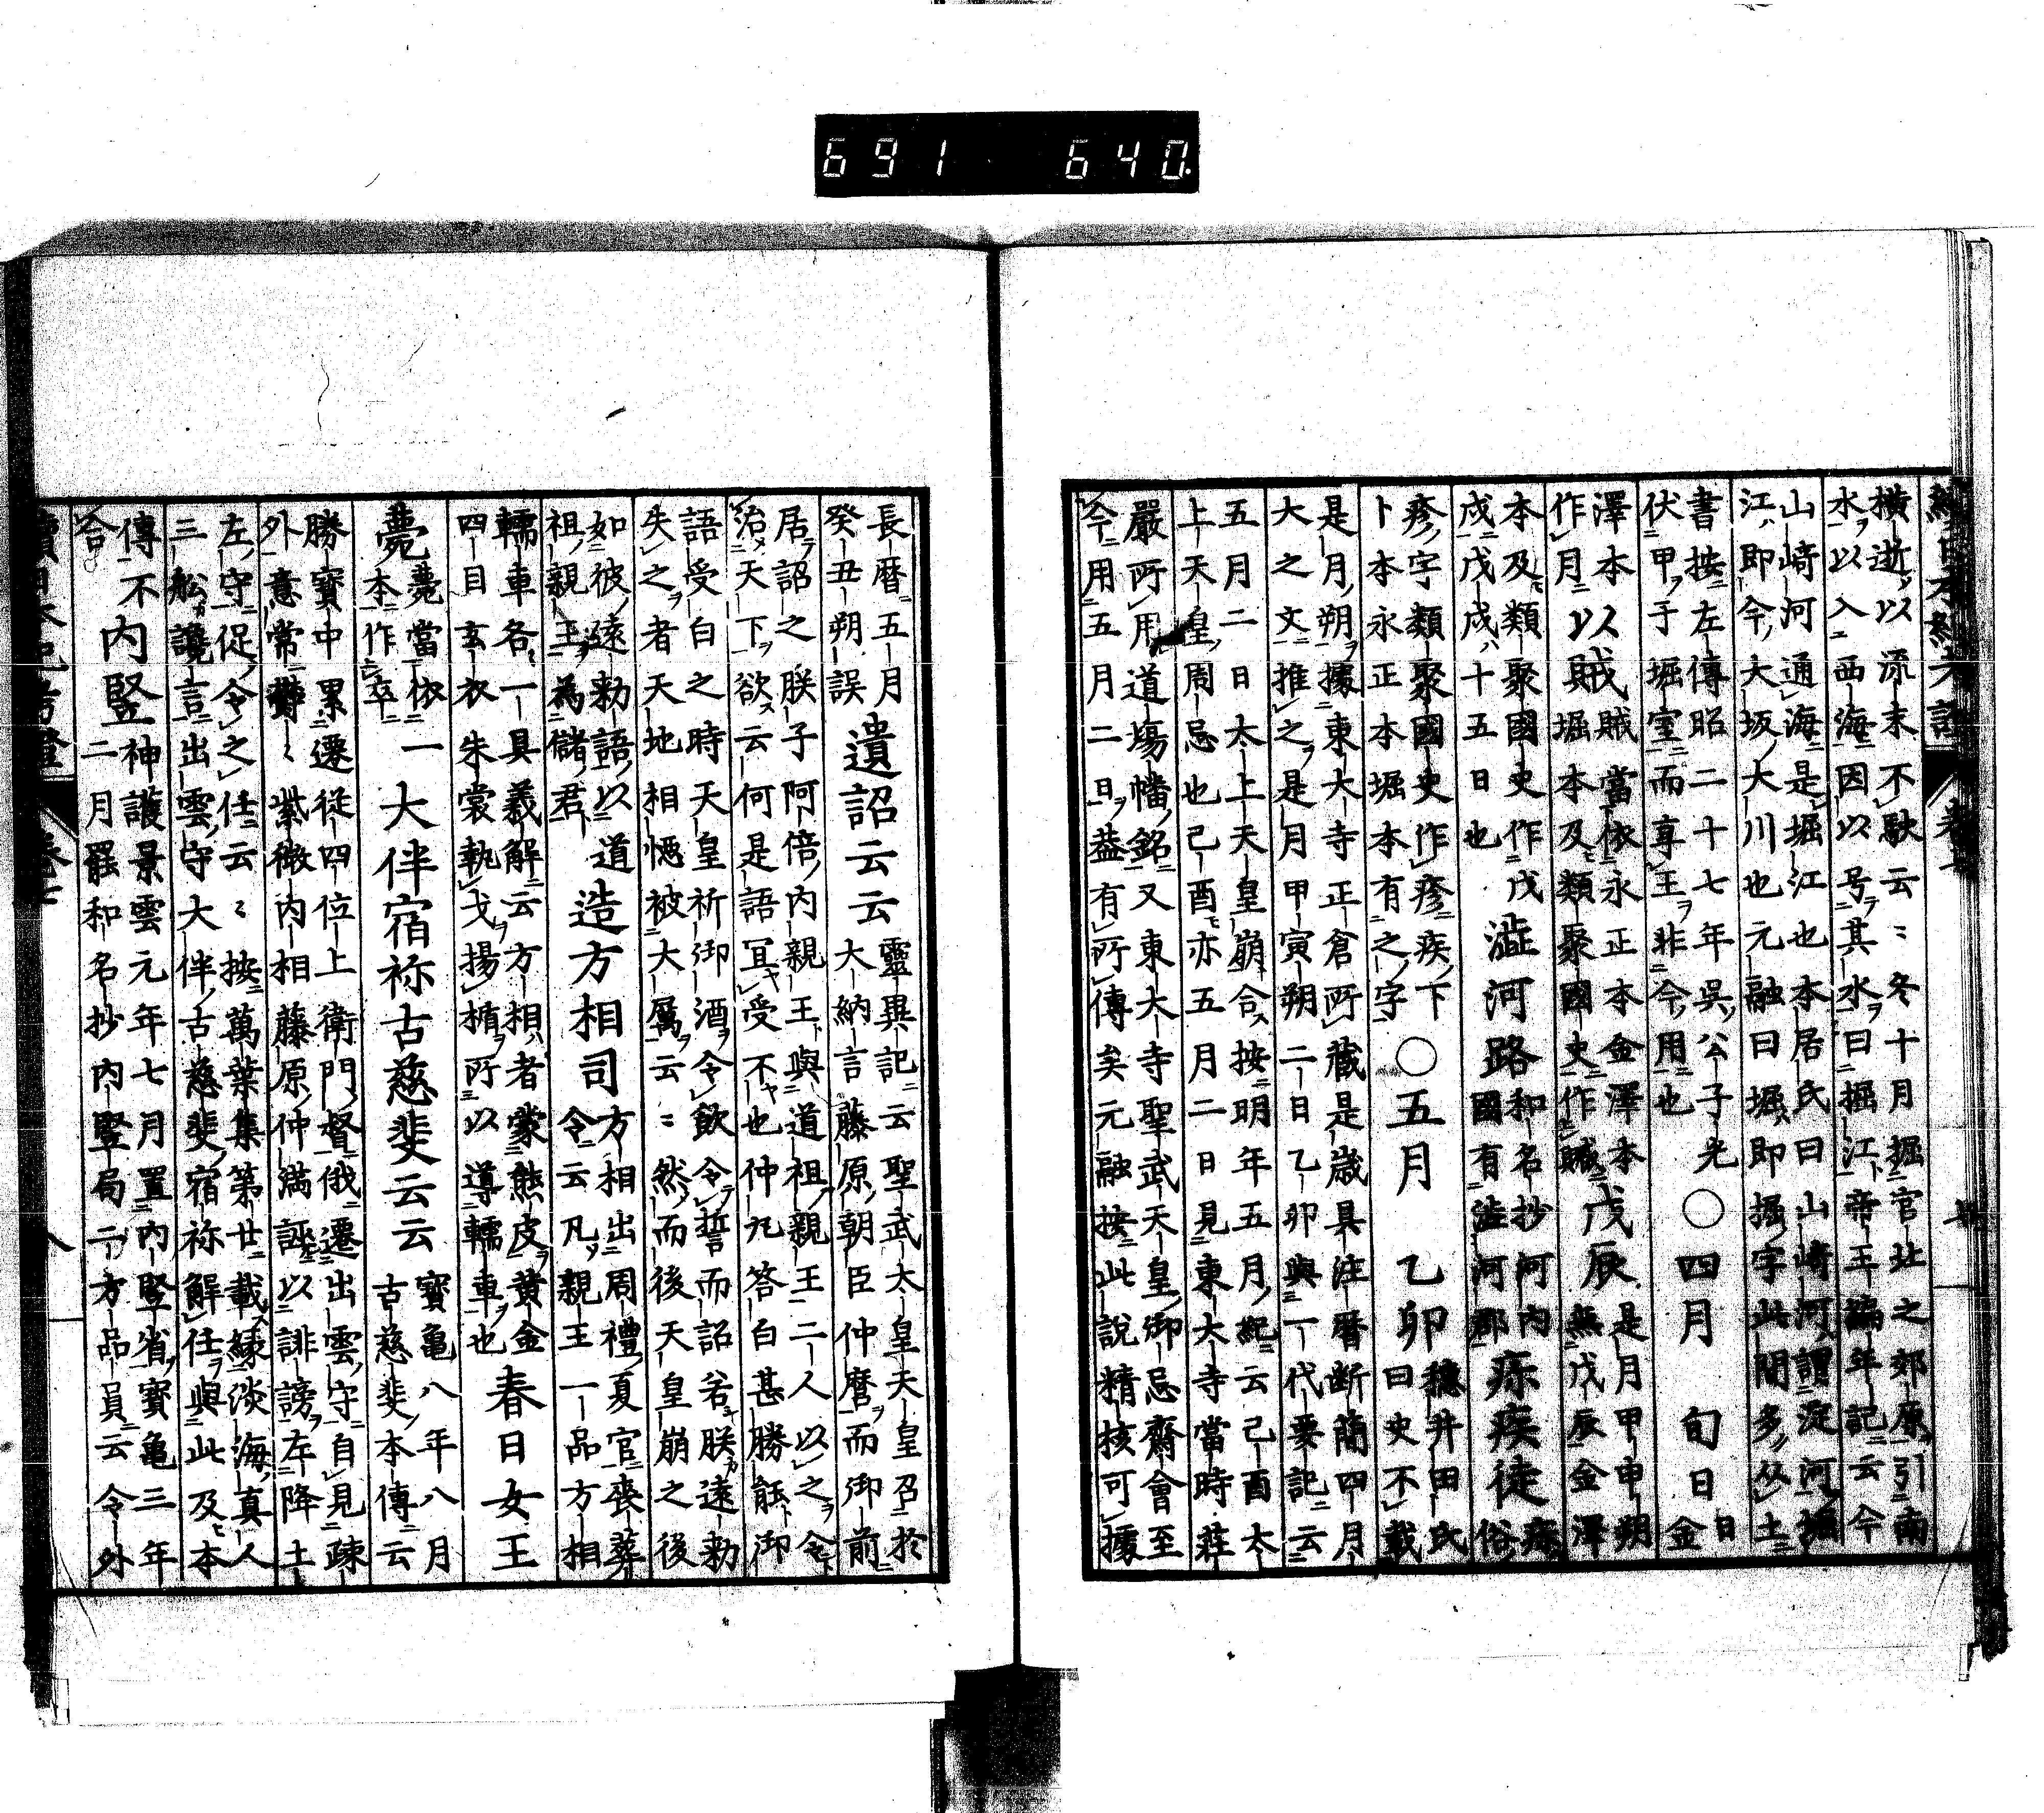 691 640
續日本紀考證 卷七
横逝以流末不駛云〻冬十月掘宮北之郊原引南
水以入西海因以号其水曰掘江帝王編年記云今
山﨑河通海是堀江也本居氏曰山﨑河謂淀河堀
江即今大坂大川也元融曰堀即掘字此間多从土
書按左傳昭二十七年呉公子光
伏甲于堀室而享王非今用也
○四月 旬日
日
金
澤本
作月
以賊
賊當依永正本金澤本
堀本及類聚國史作賊
戊辰
是月甲申朔
無戊辰金澤
本及類聚國史作戊
戌戊戌十五日也
澁河路
和名抄河内
國有澁河郡
疹疾徒
疹
俗
疹字類聚國史作疹疾下
卜本永正本堀本有之字
○五月 乙卯
穗井田氏
曰史不載
是月朔據東大寺正倉所藏是歳具注暦断簡四月
大之文推之是月甲寅朔二日乙卯與一代要記云
五月二日太上天皇崩合按明年五月紀云己酉太
上天皇周忌也己酉亦五月二日見東大寺當時莊
嚴所用道場幡銘又東大寺聖武天皇御忌齋會至
今用五月二日葢有所傳矣元融按此説精核可據
長暦五月
癸丑朔誤
遺詔云云
靈異記云聖武太皇天皇召於
大納言藤原朝臣仲麿而御前
居詔之朕子阿倍内親王與道祖親王二人以之令
治天下欲云何是語冝受不也仲丸答白甚勝能御
語受白之時天皇祈御酒令飲令誓而詔若朕遠勅
失之者天地相憾被大厲云〻然而後天皇崩之後
如彼遠勅語以道
祖親王為儲君
造方相司
方相出周禮夏官喪葬
令云凡親王一品方相
轜車各一具義解云方相者蒙熊皮黄金
四目玄衣朱裳執戈揚楯所以導轜車也
春日女王
薨
薨當依一
本作卒
大伴宿祢古慈斐云云
寳亀八年八月
古慈斐本傳云
勝寳中累遷從四位上衛門督俄遷出雲守自見疎
外意常欝〻紫微内相藤原仲滿誣以誹謗左降土
左守促令之任云〻按萬葉集第廿載縁淡海真人
三舩讒言出雲守大伴古慈斐宿祢解任與此及本
傳不
合
内竪
神護景雲元年七月置内竪省寳亀三年
二月罷和名抄内竪局二方品員云令外
續日本紀考證 卷七 八